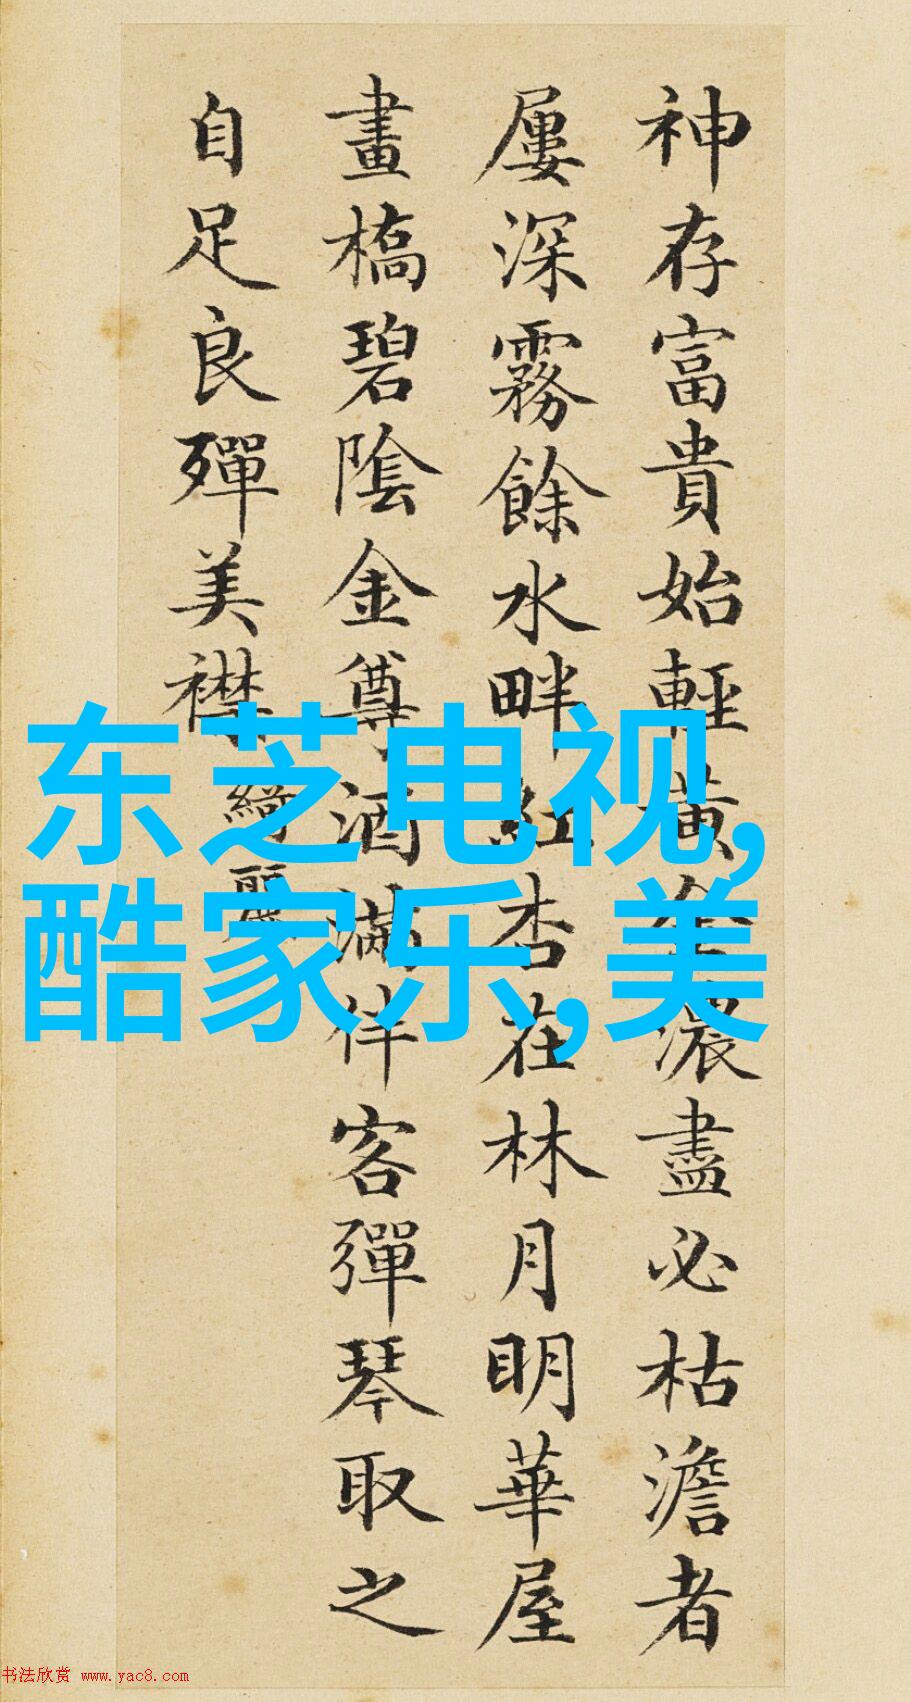 神存富貴始輕黃金濃盡必枯澹者
屢深霧餘水畔紅杏在林月明華屋
畫橋碧陰金尊酒滿伴客彈琴取之
自足良殫美襟 綺麗
东芝电视,
酷家乐,美
书法欣赏 www.yac8.com